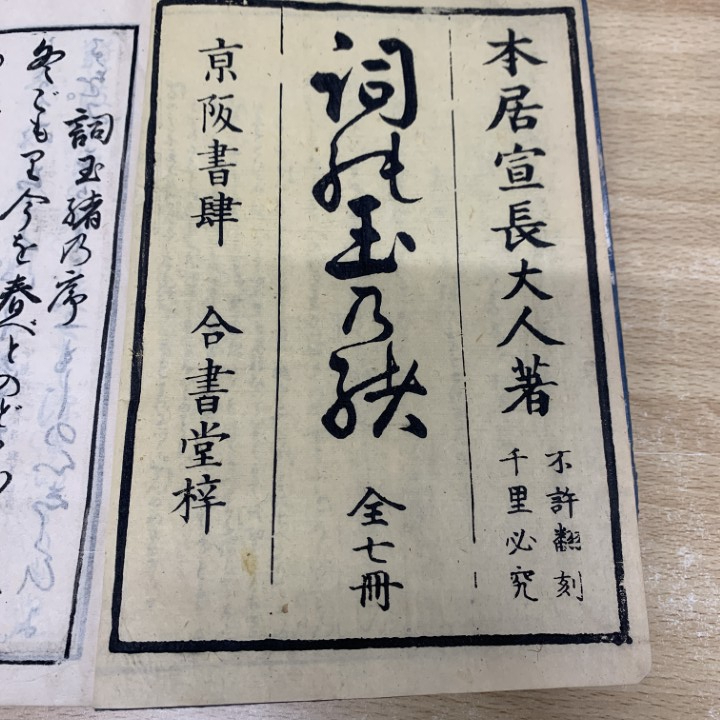 本居宣長大人著
不許翻刻
千里必究
詞能玉乃緒
全七冊
京阪書肆 合書堂梓
詞玉緒乃序
冬ごもり今を春べとのど